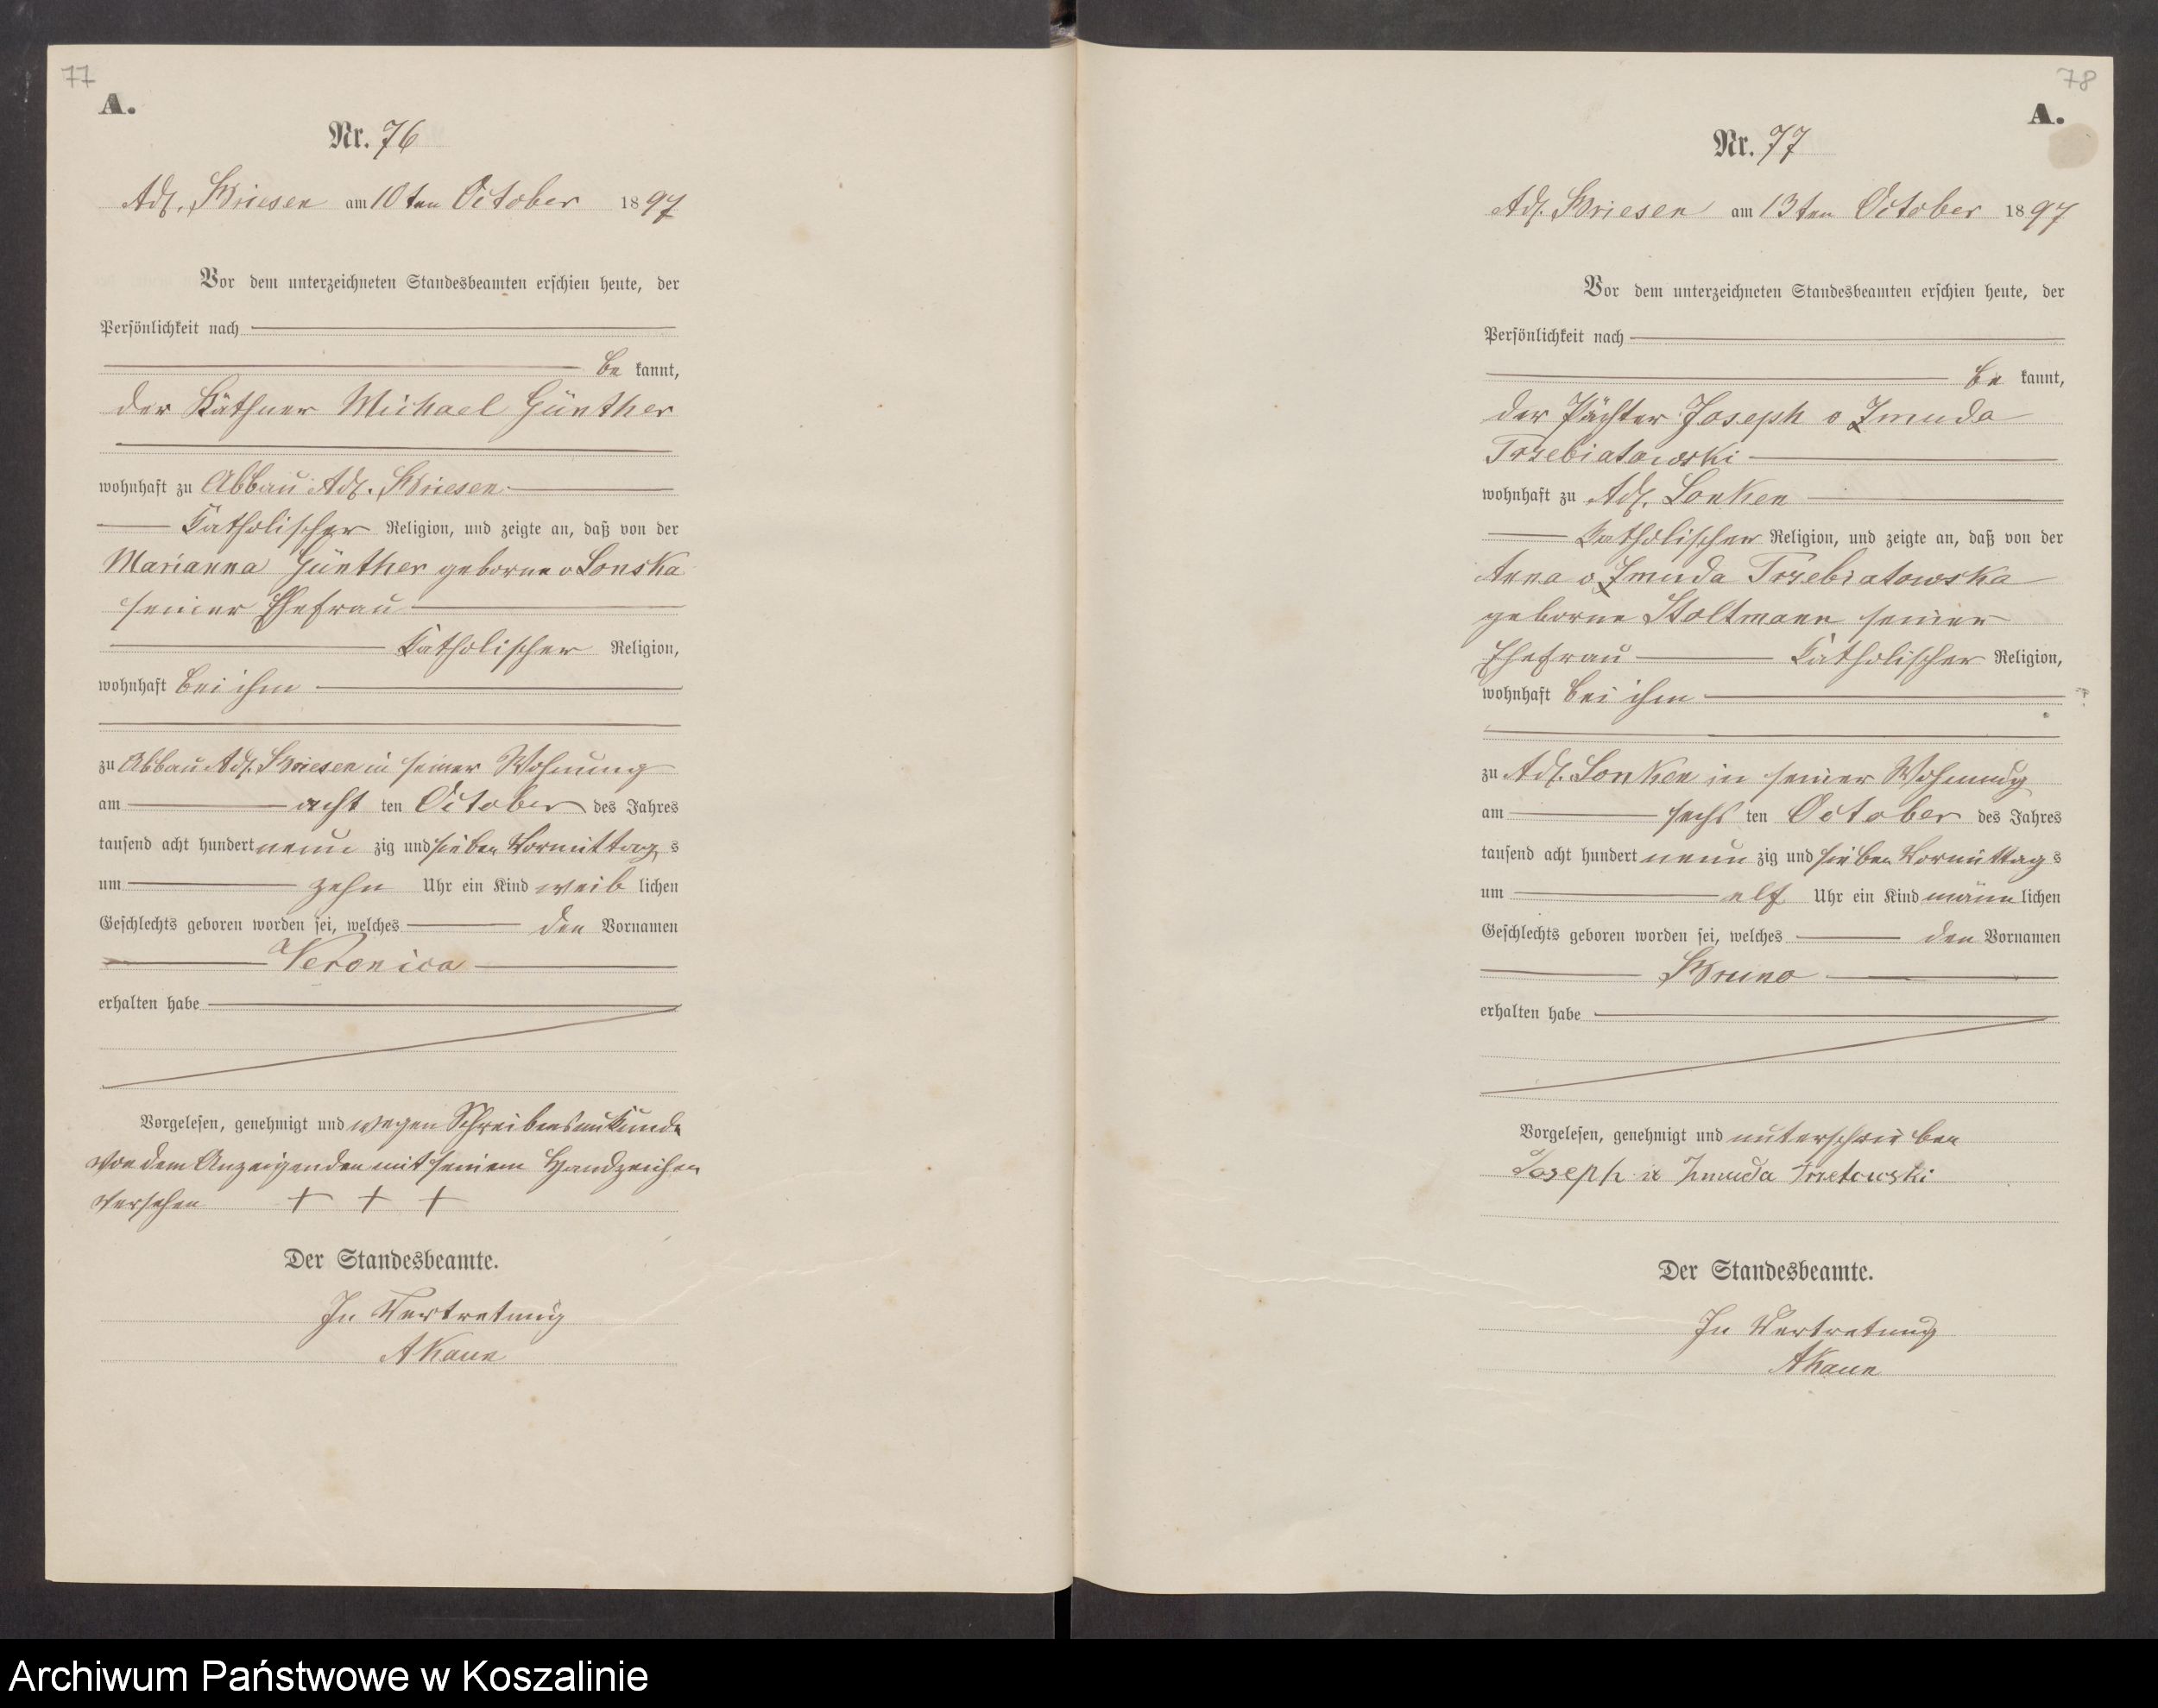 77
A.
Nr. 76
Adl. Briesen am 10ten October 1897
Vor dem unterzeichneten Standesbeamten erschien heute, der
Persönlichkeit nach
be kannt,
der Käthner Michael Günther
wohnhaft zu Abbau Adl. Briesen
katholischer Religion, und zeigte an, daß von der
Marianna Günther geborne v Lonska
seiner Ehefrau
katholischer Religion,
wohnhaft bei ihm
zu Abbau Adl. Briesen in seiner Wohnung
am acht ten October des Jahres
tausend acht hundert neun zig und sieben Vormittag s
um zehn Uhr ein Kind weib lichen
Geschlechts geboren worden sei, welches den Vornamen
Veronica
erhalten habe
Vorgelesen, genehmigt und wegen Schreibensunkunde
von dem Anzeigenden mit seinem Handzeichen
versehen + + +
Der Standesbeamte.
In Vertretung
78
A.
Nr. 77
Adl. Briesen am 13ten October 1897
Vor dem unterzeichneten Standesbeamten erschien heute, der
Persönlichkeit nach
be kannt,
der Pächter Joseph v Zmuda
Trzebiatowski
wohnhaft zu Adl. Lonken
katholischer Religion, und zeigte an, daß von der
Anna v Zmuda Trzebiatowska
geborne Stoltmann seiner
Ehefrau katholischer Religion,
wohnhaft bei ihm
zu Adl. Lonken in seiner Wohnung
am sechs ten October des Jahres
tausend acht hundert neun zig und sieben Vormittag s
um elf Uhr ein Kind männ lichen
Geschlechts geboren worden sei, welches den Vornamen
Bruno
erhalten habe
Vorgelesen, genehmigt und unterschrieben
Joseph v Zmuda
Der Standesbeamte.
In Vertretung
Archiwum Państwowe w Koszalinie